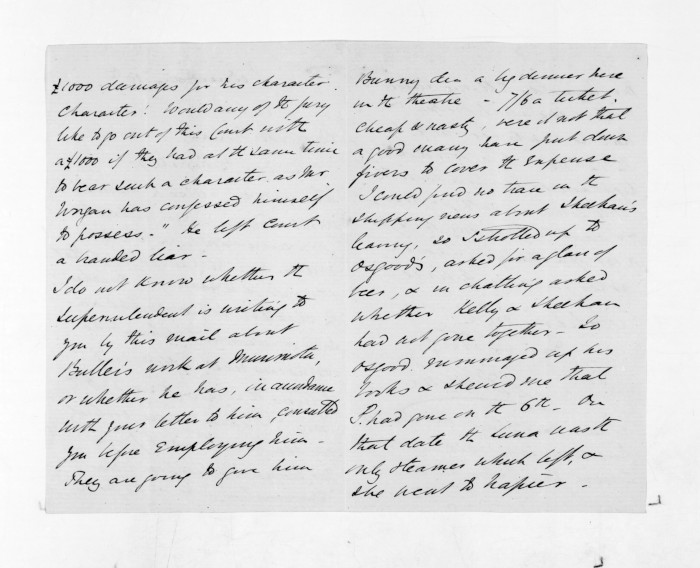 £1000 damages for his character.
Character! Would any of the jury
like to go out of this Court with
a £1000 if they had at the same time
to bear such a character as Mr
Worgan has confessed himself
to possess -" He left Court
a branded liar -
I do not know whether the
Superintendent is writing to
you by this mail about
Buller's work at Murimotu,
or whether he has, in accordance
with your letter to him, consulted
you before employing him -
They are going to give him
Bunny din a big dinner here
in the theatre - 7/6 a ticket.
Cheap & nasty, were it not that
a good many have put down
fivers to cover the expense
I could find no trace in the
shipping news about Sheehan's
leaving, so I strolled up to
Osgood's, asked for a glass of
beer, & in chatting asked
whether Kelly & Sheehan
had not gone together - So
Osgood rummaged up his
books & shewed me that
S. had gone on the 6th - On
that date the Luna was the
only steamer which left, &
she went to Napier -